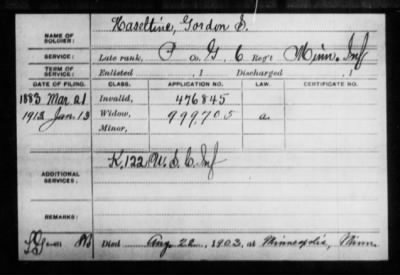 Haseltine, Gordon S.
NAME OF SOLDIER:
SERVICE: Late rank, P Co. G, 6 Reg't Minn. Inf
TERM OF SERVICE: Enlisted , 1 Discharged , 1
DATE OF FILING. CLASS. APPLICATION NO. LAW. CERTIFICATE NO.
1883 Mar 21 Invalid, 476845
1913 Jan. 13 Widow, 999,705 a.
Minor,
ADDITIONAL SERVICES: K, 122 U. S. C. Inf
REMARKS:
Died Aug. 22, 1903, at Minneapolis, Minn.